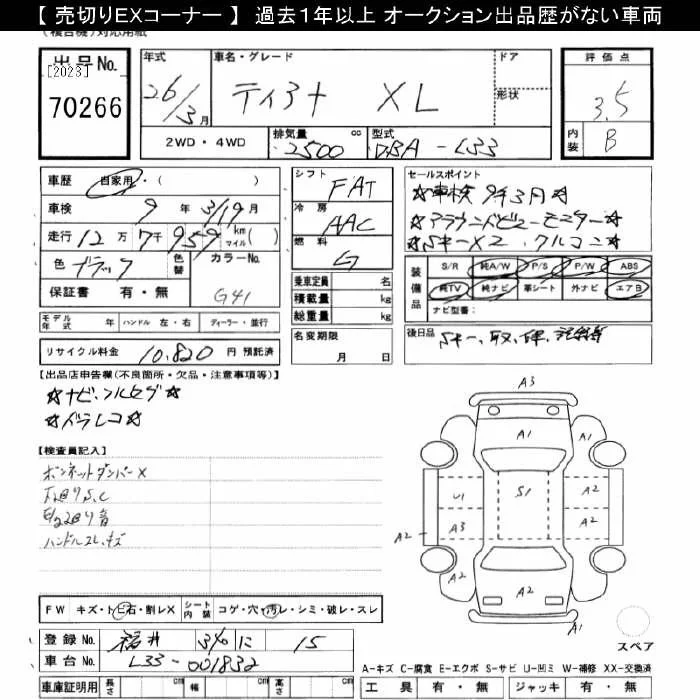 【 売切りEXコーナー 】 過去１年以上 オークション出品歴がない車両
(複合機)対応用紙
出品No.
[2023]
70266
年式
26/3月
車名・グレード
ティアナ XL
ドア
形状
評価点
3.5
内装 B
2WD・4WD
排気量 2500 cc
型式 DBA-L33
車歴 自家用・( )
車検 9年 3/19月
走行 12万 7千 959 km マイル( )
色 ブラック 色替
カラーNo. G41
保証書 有・無
シフト FAT
冷房 AAC
燃料 G
乗車定員 名
積載量 kg
総重量 kg
名変期限
月 日
セールスポイント
☆車検 9年3月☆
☆アラウンドビューモニター☆
☆Sキー×2 クルコン☆
装備品
S/R 純A/W P/S P/W ABS
純TV 純ナビ 革シート 外ナビ エアB
ナビ型番:
モデル年式 年 ハンドル 左・右 ディーラー・並行
後日品 Sキー、取、保、記録等
リサイクル料金 10,820 円 預託済
【出品店申告欄(不良箇所・欠品・注意事項等)】
☆ナビ、フルセグ☆
☆ドラレコ☆
【検査員記入】
ボンネットダンパーX
下廻りS、C
ハンドルスレ、キズ
A3
A1
A1
U1
S1
A2
A2
A3
A2
A2
A2
A1
FW キズ・ト ビ石・割レX シート内装 コゲ・穴・汚レ・シミ・破レ・スレ
スペア
登録No. 福井 310 に 15
車台No. L33-001832
A-キズ C-腐食 E-エクボ S-サビ U-凹ミ W-補修 XX-交換済
車庫証明用 長さ cm 幅 cm 高さ cm
工具 有・無 ジャッキ 有・無